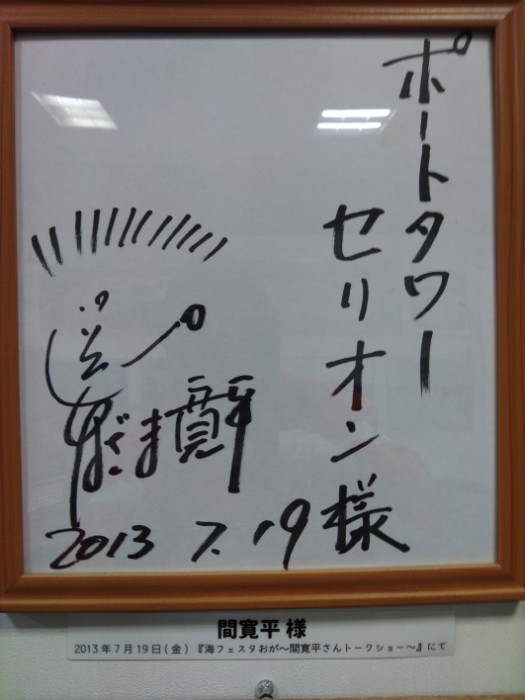 ポートタワー
セリオン様
はざま寛平
2013 7.19
間寛平 様
2013年7月19日(金)『海フェスタおが～間寛平さんトークショー～』にて